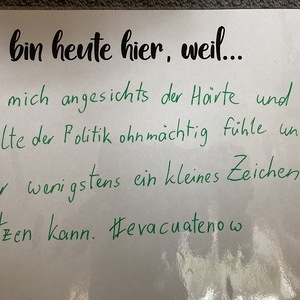 bin heute hier, weil...
mich angesichts der Härte und
lte der Politik ohnmächtig fühle un
r wenigstens ein kleines Zeichen
tzen kann. #evacuatenow